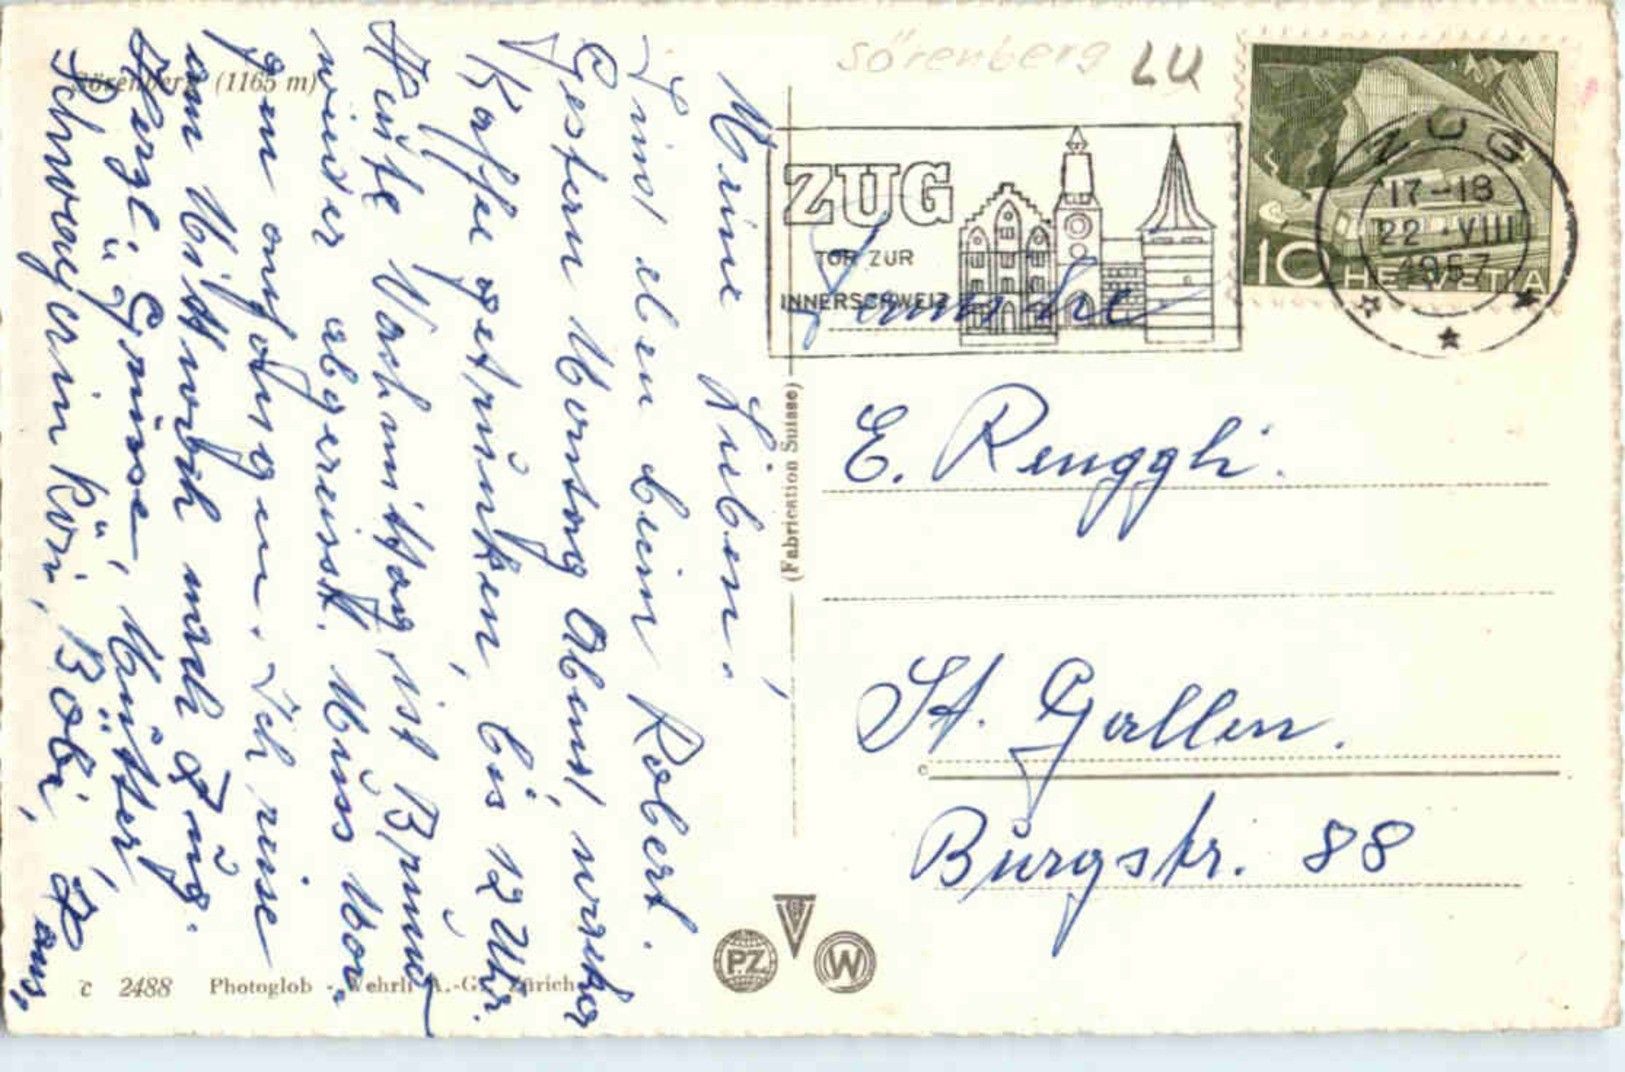 Sörenberg LU
Sörenberg (1165 m)
ZUG
TOR ZUR
INNERSCHWEIZ
ZUG
17-18
22.VIII
1957
10 HELVETIA
Meine Lieben!
Sind eben beim Robert.
Gestern Montag Abend, werktor
Kaffe getrunken, bis 12 Uhr.
Heute Nachmittag ist Bruno
wieder abgereist. Muss Mor-
gen anfangen. Ich reise
am Mittwoch nach Zug.
Herzl. Grüsse, Mutter,
Schwägerin Rösi, Böbi,
(Fabrication Suisse)
Familie
E. Renggli.
St. Gallen.
Burgstr. 88
c 2488 Photoglob - Wehrli A.-G. Zürich
PZ
W